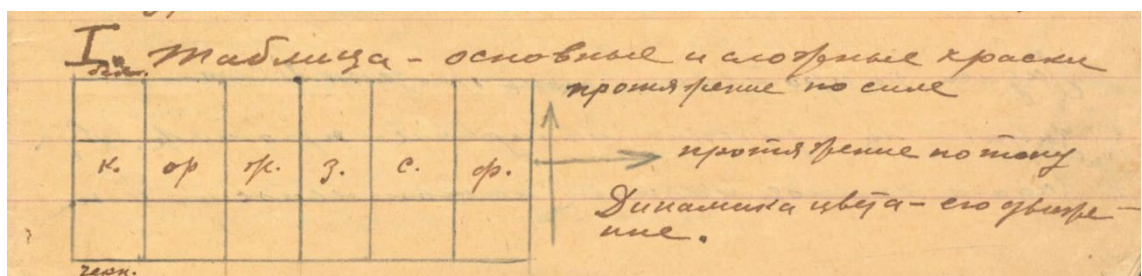 I. Таблица - основные и сложные краски
бел.
протяжение по силе
к. ор ж. з. с. ф.
протяжение по тону
Динамика цвета - его движе-
ние.
черн.